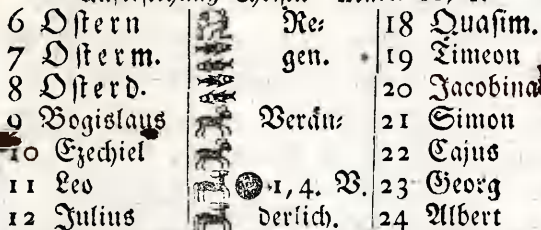 6 Ostern Re⸗ 18 Quasim.
7 Osterm. gen. 19 Timeon
8 Osterd. 20 Jacobina
9 Bogislaus Verän⸗ 21 Simon
10 Ezechiel 22 Cajus
11 Leo 1, 4. V. 23 Georg
12 Julius derlich. 24 Albert